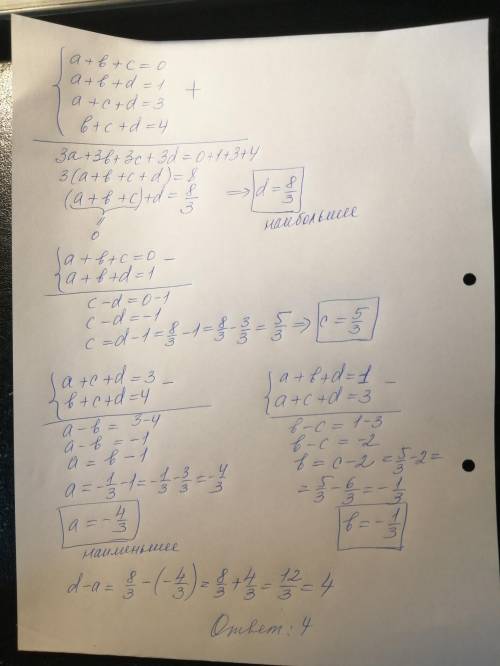 a+b+c=0
a+b+d=1
a+c+d=3 +
b+c+d=4
3a+3b+3c+3d=0+1+3+4
3(a+b+c+d)=8
(a+b+c)+d=8/3 ⇒ d=8/3
0 наибольшее
a+b+c=0 −
a+b+d=1
c-d=0-1
c-d=-1
c=d-1=8/3-1=8/3-3/3=5/3 ⇒ c=5/3
a+c+d=3 −
b+c+d=4
a-b=3-4
a-b=-1
a=b-1
a=-1/3-1=-1/3-3/3=-4/3
a=-4/3
наименьшее
a+b+d=1 −
a+c+d=3
b-c=1-3
b-c=-2
b=c-2=5/3-2=
=5/3-6/3=-1/3
b=-1/3
d-a=8/3-(-4/3)=8/3+4/3=12/3=4
Ответ: 4